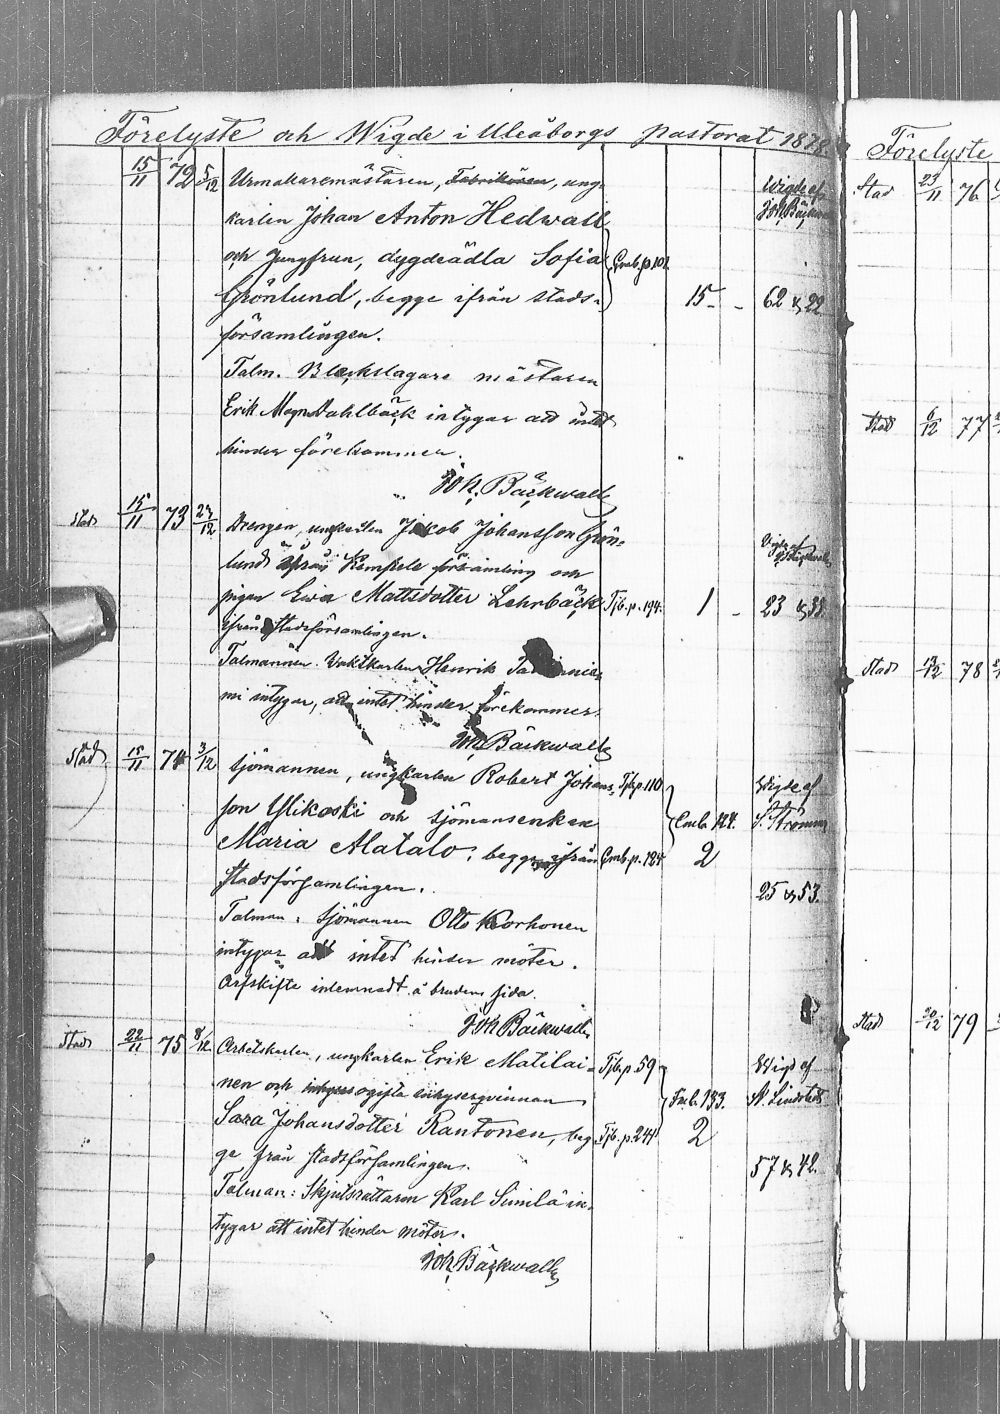 Förelyste och Wigde i Uleåborgs pastorat 1878.
15/11 72 5/12 Urmakaremästaren, Fabrikören, ung-
karlen Johan Anton Hedwall
och Jungfrun, dygdeädla Sofia Cmb. p. 101.
Grönlund, begge ifrån stads- 15 - - 62 & 22
församlingen.
Wigde af
Joh. Bäckwall
Talm. Bleckslagare mästaren
Erik Magn. Dahlbäck intygar att intet
hinder förekommer.
Joh. Bäckwall
Stad 15/11 73 23/12 Drengen, ungkarlen Jakob Johansson Grön-
lund ifrån Kempele församling och
pigan Ewa Mattsdotter Lehrbäck Tjb. p. 194. 1 - 23 & 38.
ifrån Stadsförsamlingen.
Talmannen Vaktkarlen Henrik
mi intygar, att intet hinder förekommer.
Joh. Bäckwall
Stad 15/11 74 3/12 Sjömannen, ungkarlen Robert Johans- Tjb. p. 110
son Ylikoski och sjömansenkan Cmb. 124.
Maria Matalo, begge ifrån Cmb. p. 124 2
Wigde af
S. Strömm
Stadsförsamlingen. 25 & 53.
Talman: Sjömannen Otto Korhonen
intygar att intet hinder möter.
Arfskifte inlemnadt å brudens sida.
Joh. Bäckwall
Stad 22/11 75 8/12 Arbetskarlen, ungkarlen Erik Matilai- Tjb. p. 59
nen och inhyses ogifta inhysesqvinnan Fmb. 133.
Sara Johansdotter Rantonen, beg- Tjb. p. 244 2
Wigd af
N. Lindstedt
ge från Stadsförsamlingen. 57 & 42.
Talman: Skjutsrättaren Karl Simila in-
tygar att intet hinder möter.
Joh. Bäckwall
Förelyste
Stad 23/11 76
Stad 6/12 77
Stad 13/12 78
Stad 20/12 79